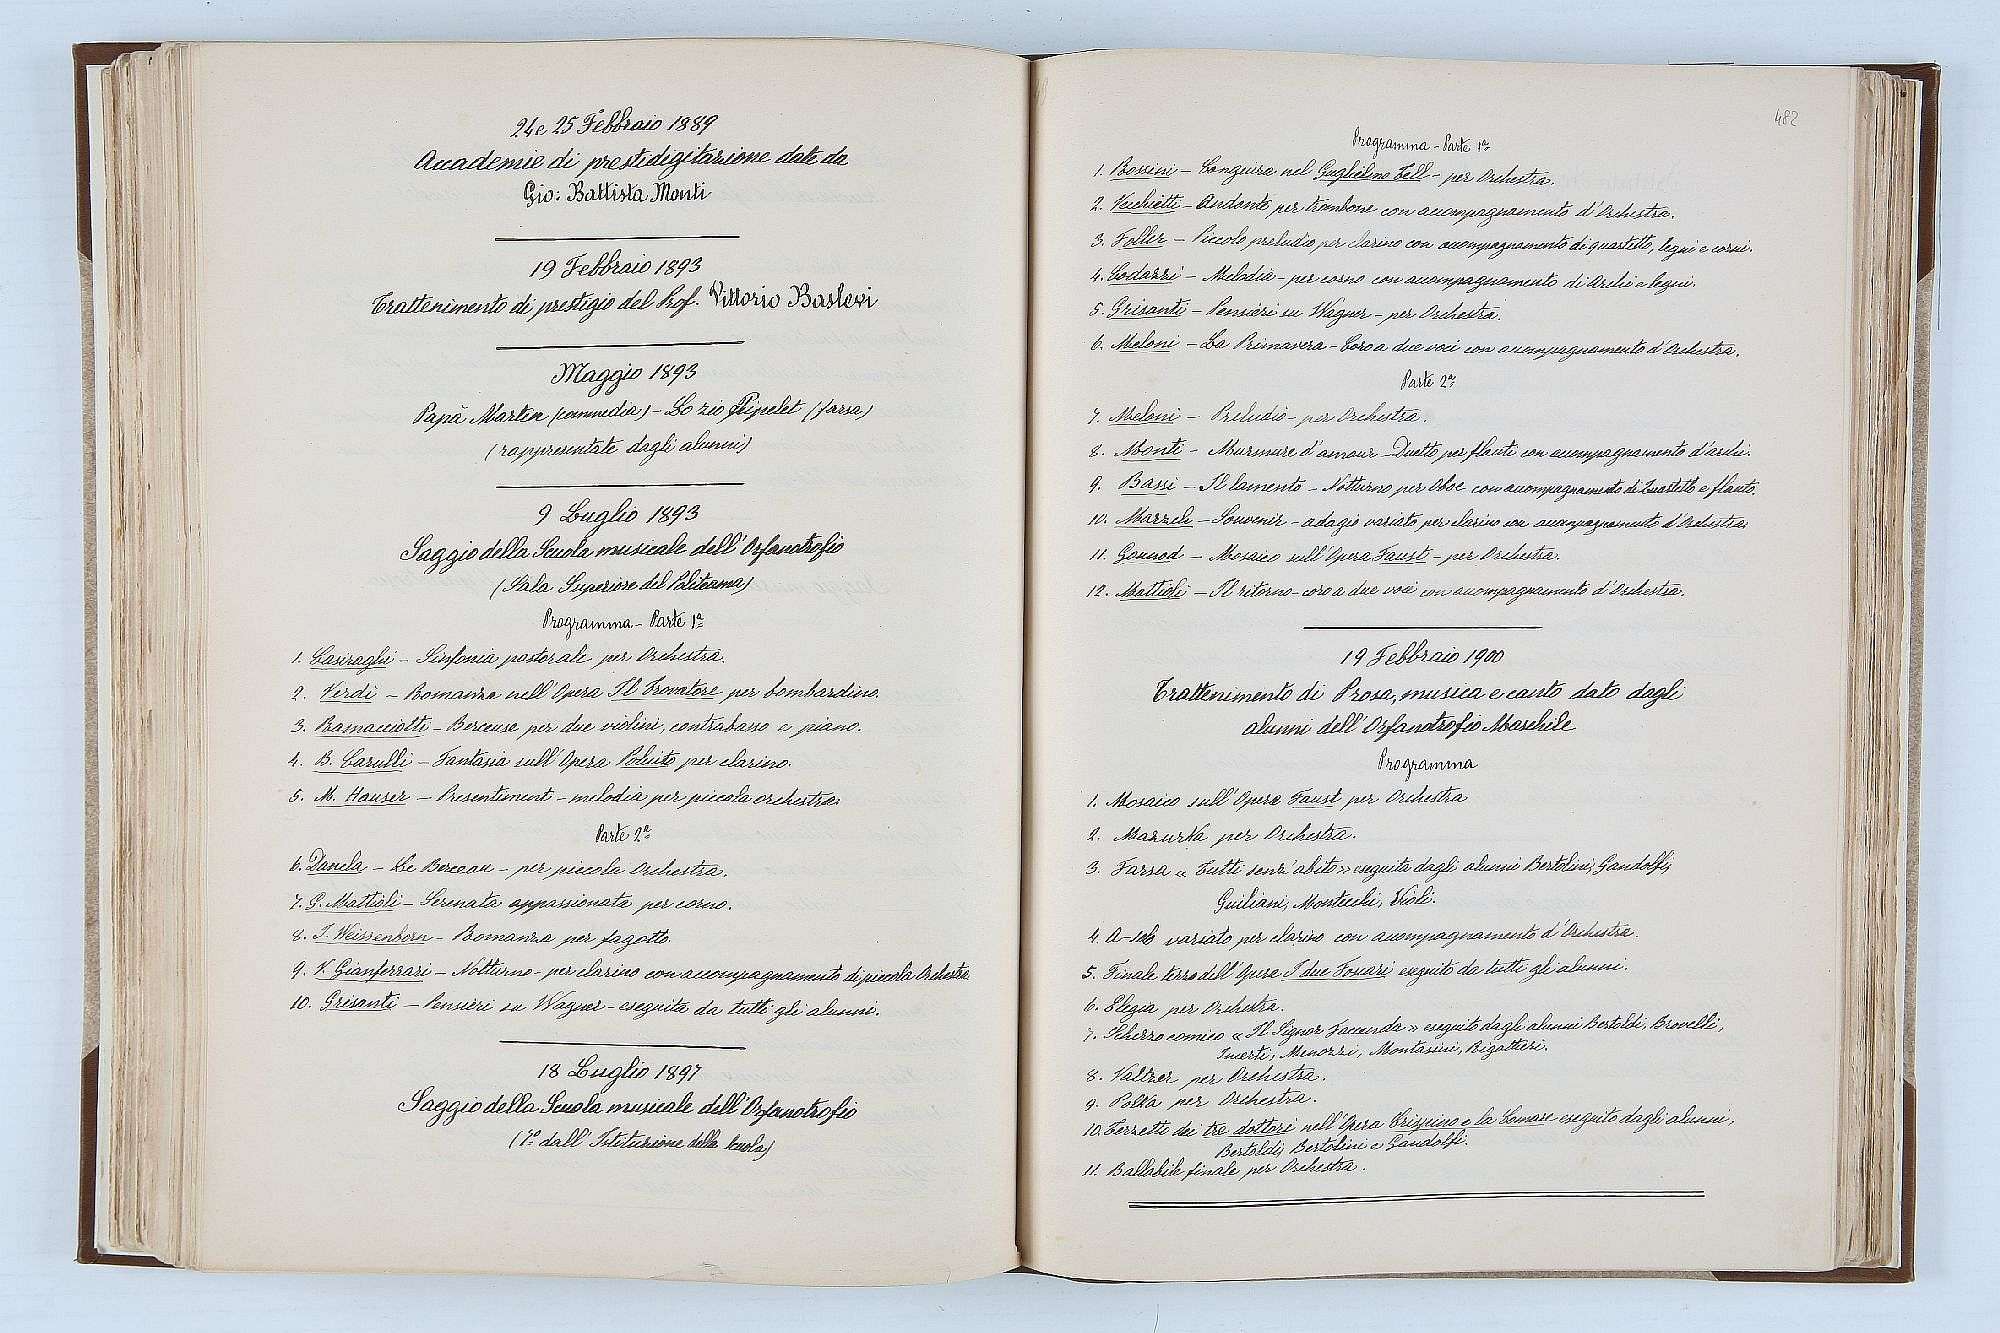 24 e 25 Febbraio 1889
Accademie di prestidigitazione date da
Gio: Battista Monti
19 Febbraio 1893
Trattenimento di prestigio del Prof. Vittorio Baslevi
Maggio 1893
Papà Martin (commedia) - Lo zio Pipelet (farsa)
(rappresentate dagli alunni)
9 Luglio 1893
Saggio della Scuola musicale dell'Orfanotrofio
(Sala Superiore del Politeama)
Programma - Parte 1ª
1. Casiraghi - Sinfonia pastorale per Orchestra.
2. Verdi - Romanza nell'Opera Il Trovatore per bombardino.
3. Ramacciotti - Berceuse per due violini, contrabasso e piano.
4. B. Carulli - Fantasia sull'Opera Poliuto per clarino.
5. M. Hauser - Presentiment - melodia per piccola orchestra.
Parte 2ª
6. Dancla - Le Berceau - per piccola Orchestra.
7. G. Mattioli - Serenata appassionata per corno.
8. J. Weissenborn - Romanza per fagotto.
9. V. Gianferrari - Notturno - per clarino con accompagnamento di piccola Orchestra
10. Grisanti - Pensieri su Wagner - eseguita da tutti gli alunni.
18 Luglio 1897
Saggio della Scuola musicale dell'Orfanotrofio
(1º dall'Istituzione della Scuola)
482
Programma - Parte 1ª
1. Rossini - Congiura nel Guglielmo Tell - per Orchestra.
2. Vecchietti - Andante per trombone con accompagnamento d'Orchestra.
3. Foller - Piccolo preludio per clarino con accompagnamento di quartetto, legni e corni.
4. Codazzi - Melodia - per corno con accompagnamento di Archi e legni.
5. Grisanti - Pensieri su Wagner - per Orchestra.
6. Meloni - La Primavera - Coro a due voci con accompagnamento d'Orchestra.
Parte 2ª
7. Meloni - Preludio - per Orchestra.
8. Monti - Murmure d'amour - Duetto per flauti con accompagnamento d'archi.
9. Bassi - Il lamento - Notturno per Oboe con accompagnamento di Quartetto e flauto.
10. Marzch - Souvenir - adagio variato per clarino con accompagnamento d'Orchestra.
11. Gounod - Mosaico sull'Opera Faust - per Orchestra.
12. Mattioli - Il ritorno - coro a due voci con accompagnamento d'Orchestra.
19 Febbraio 1900
Trattenimento di Prosa, musica e canto dato dagli
alunni dell'Orfanotrofio Maschile
Programma
1. Mosaico sull'Opera Faust per Orchestra
2. Mazurka per Orchestra.
3. Farsa « Tutti senz'abito » eseguita dagli alunni Bertolini, Gandolfi,
Guiliani, Montecchi, Violi.
4. A-solo variato per clarino con accompagnamento d'Orchestra.
5. Finale terzo dell'Opera I due Foscari eseguito da tutti gli alunni.
6. Elegia per Orchestra.
7. Scherzo comico « Il Signor Facenda » eseguito dagli alunni Bertoldi, Brovelli,
Incerti, Menozzi, Montasini, Rigattieri.
8. Valtzer per Orchestra.
9. Polka per Orchestra.
10. Terzetto dei tre dottori nell'Opera Crispino e la Comare eseguito dagli alunni,
Bertoldi, Bertolini e Gandolfi.
11. Ballabile finale per Orchestra.